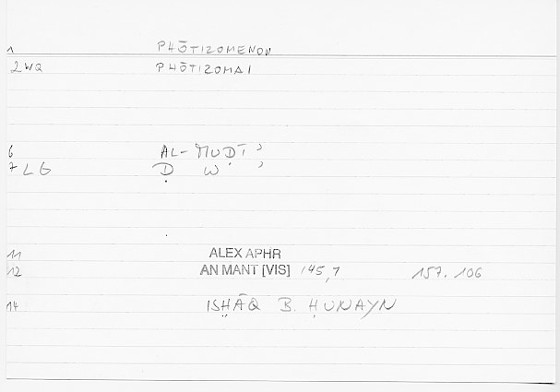 1 PHŌTIZOMENON
2WQ PHŌTIZOMAI
6 AL-MUḌĪʾ
7 LG Ḍ W ʾ
11 ALEX APHR
12 AN MANT [VIS] 145,7 157.106
14 ISḤĀQ B. ḤUNAYN